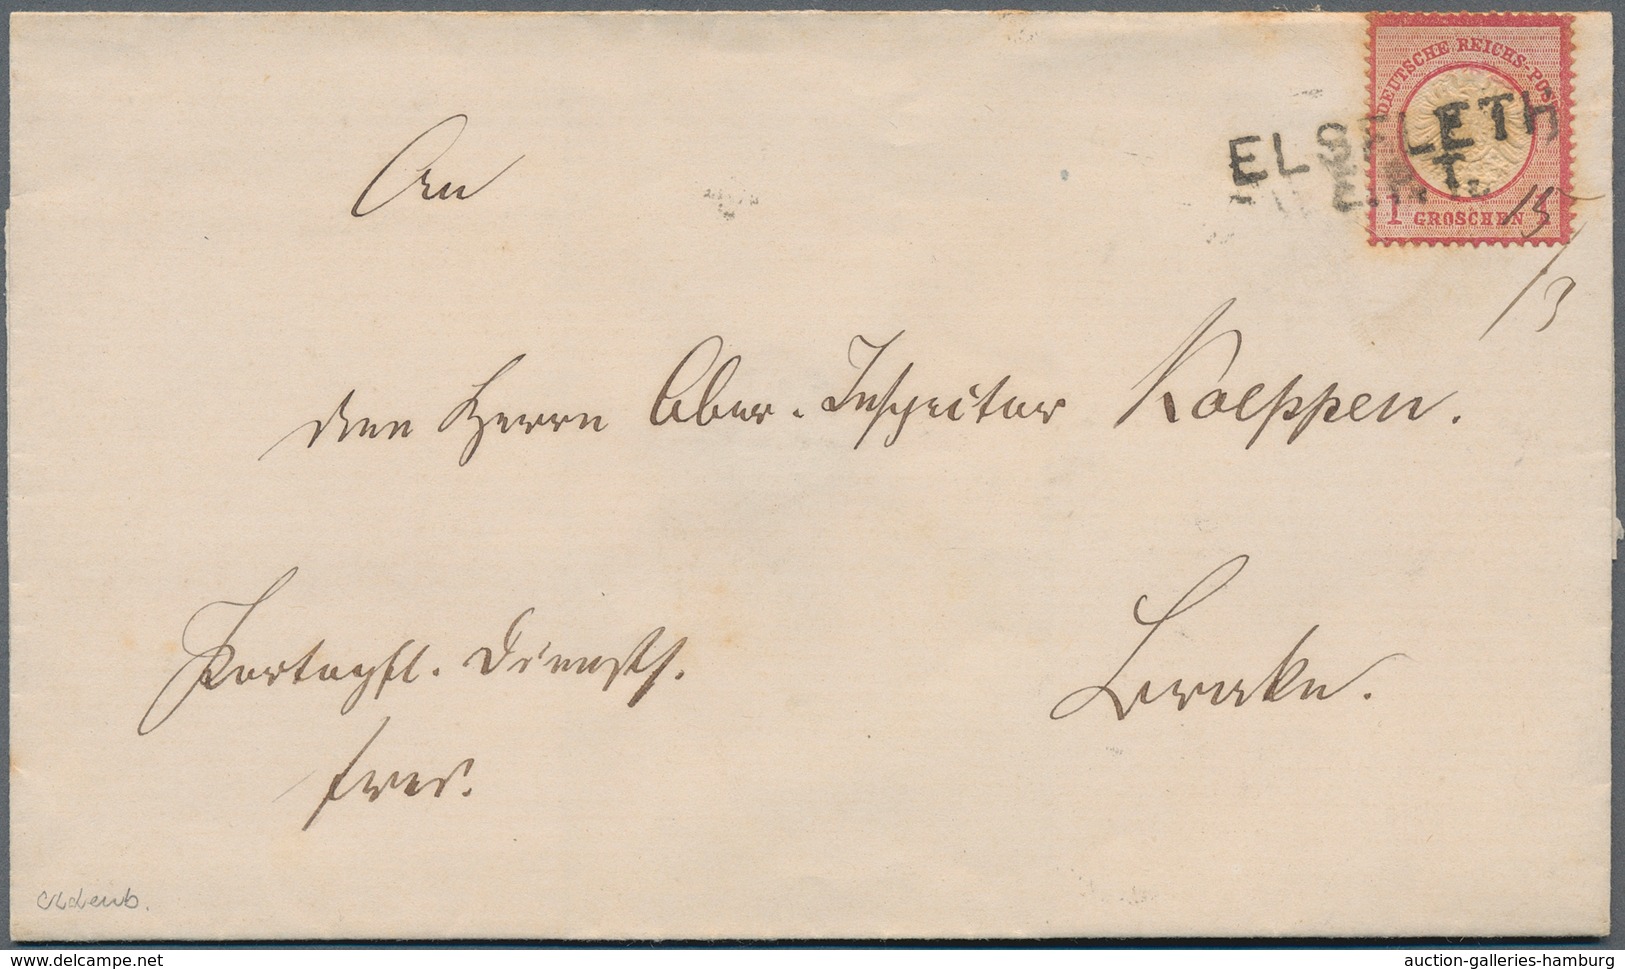 DEUTSCHE REICHS-POST
ELSFLETH
1 GROSCHEN 1
15/3
An
den Herrn Ober-Inspector Koeppen.
Brake.
Portopfl. Diensts.
frei.
Oldenb.
www.delcampe.net
auction-galleries-hamburg